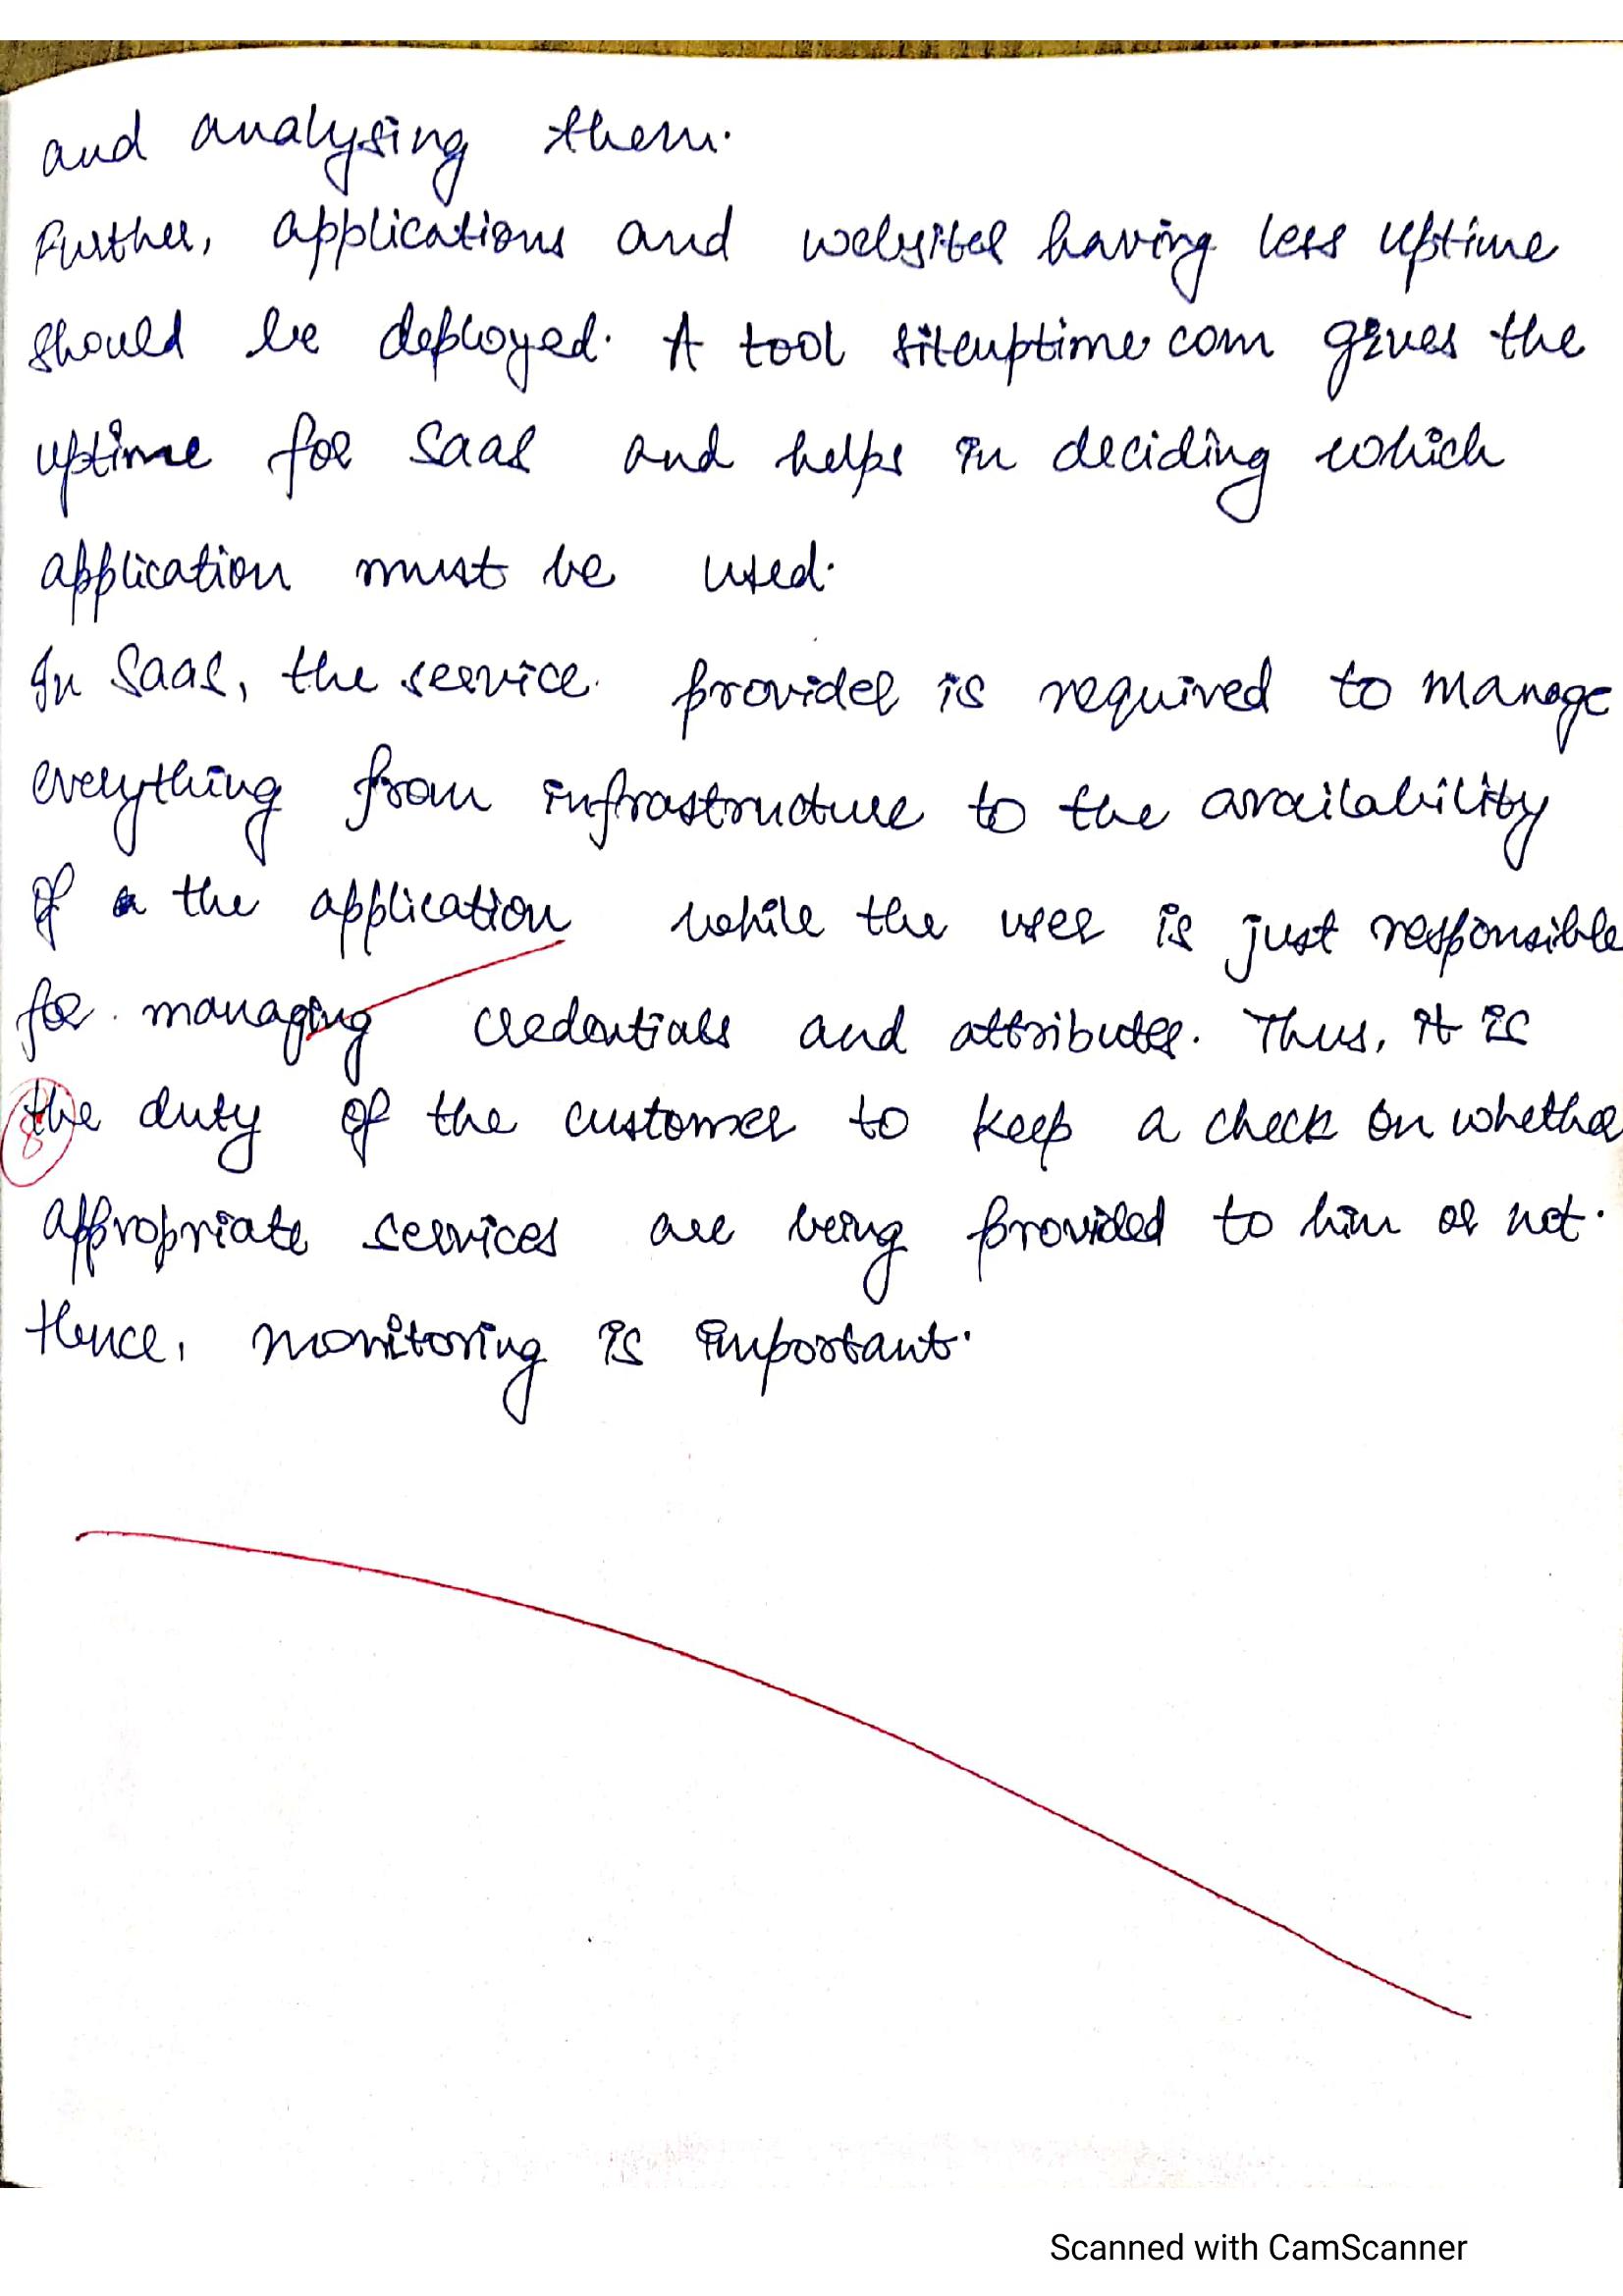 and analysing them.
Further, applications and websites having less uptime
should be deployed. A tool siteuptime.com gives the
uptime for SaaS and helps in deciding which
application must be used.
In SaaS, the service provider is required to manage
everything from infrastructure to the availability
of the application while the user is just responsible
for managing credentials and attributes. Thus, it is
the duty of the customer to keep a check on whether
8
appropriate services are being provided to him or not.
Hence, monitoring is important.
Scanned with CamScanner